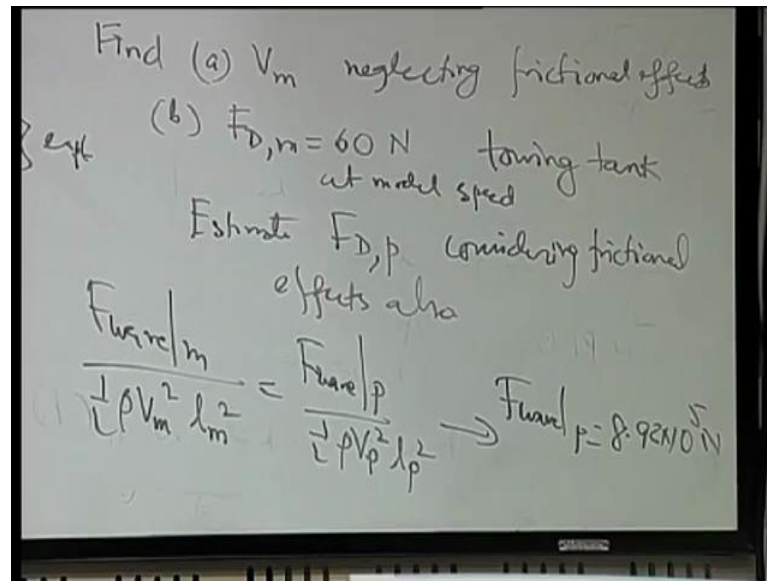 Find (a) Vm neglecting frictional effects
} expt (b) F_D,m = 60 N towing tank
at model speed
Estimate F_D,p considering frictional
effects also
Fwave|m / ½ρVm² lm² = Fwave|p / ½ρVp² lp² → Fwave|p = 8.92×10⁵ N